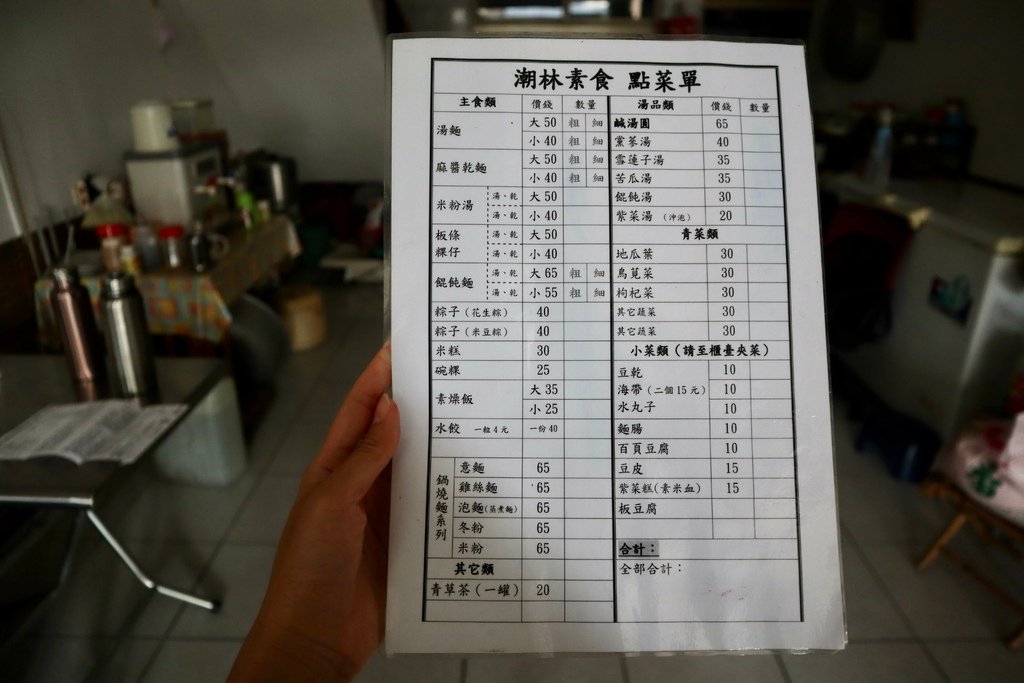 潮林素食 點菜單
主食類 價錢 數量
湯麵 大 50 粗 細
小 40 粗 細
麻醬乾麵 大 50 粗 細
小 40 粗 細
米粉湯 湯、乾 大 50
湯、乾 小 40
板條 湯、乾 大 50
粿仔 湯、乾 小 40
餛飩麵 湯、乾 大 65 粗 細
湯、乾 小 55 粗 細
粽子(花生粽) 40
粽子(米豆粽) 40
米糕 30
碗粿 25
素燥飯 大 35
小 25
水餃 一粒4元 一份40
鍋燒麵系列
意麵 65
雞絲麵 65
泡麵(蒸煮麵) 65
冬粉 65
米粉 65
其它類
青草茶(一罐) 20
湯品類 價錢 數量
鹹湯圓 65
黨蔘湯 40
雪蓮子湯 35
苦瓜湯 35
餛飩湯 30
紫菜湯 (沖泡) 20
青菜類
地瓜葉 30
鳥莧菜 30
枸杞菜 30
其它蔬菜 30
其它蔬菜 30
小菜類(請至櫃臺央菜)
豆乾 10
海帶(二個15元) 10
水丸子 10
麵腸 10
百頁豆腐 10
豆皮 15
紫菜糕(素米血) 15
板豆腐
合計：
全部合計：